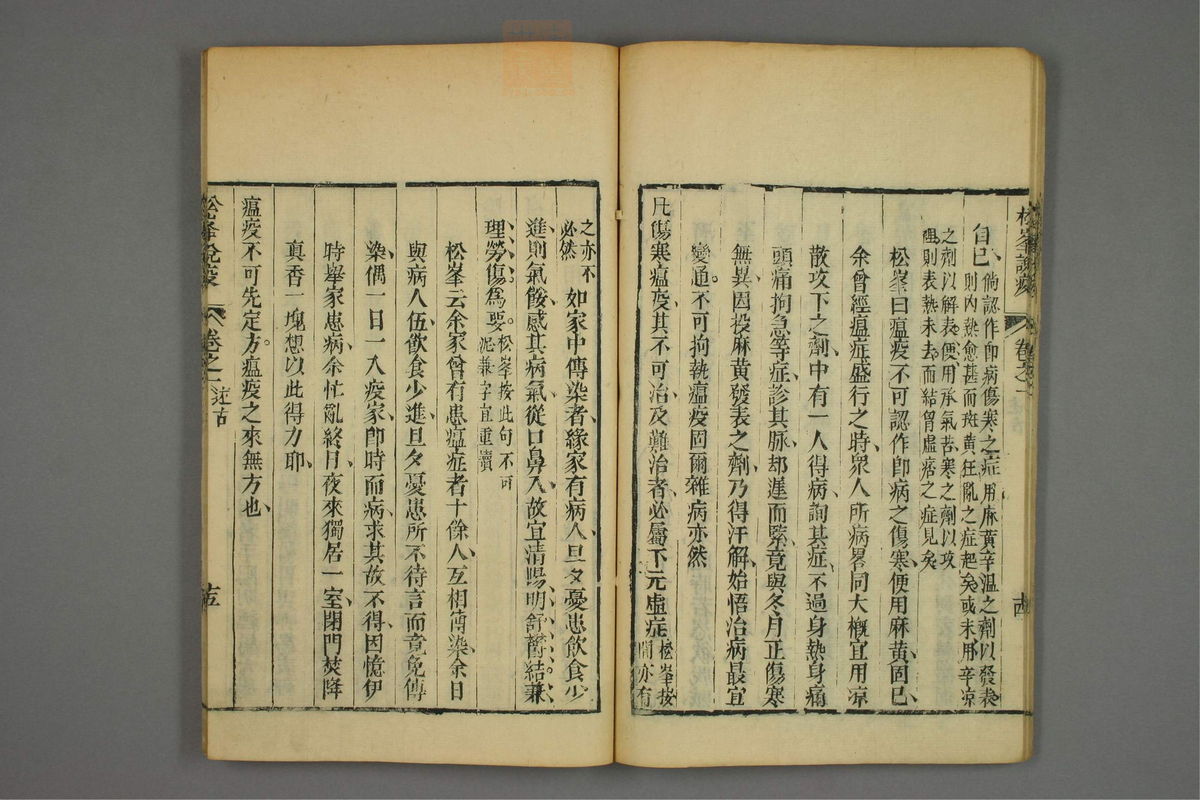 松峯說疫 卷之一 述古 十四
自已倘認作卽病傷寒之症用麻黃辛溫之劑以發表
則內熱愈甚而斑黃狂亂之症起矣或未用辛凉
之劑以解表便用承氣苦寒之劑以攻
則表熱未去而結胷虛痞之症見矣
松峯曰瘟疫不可認作卽病之傷寒便用麻黃固已
余曾經瘟症盛行之時衆人所病畧同大槪宜用凉
散攻下之劑中有一人得病詢其症不過身熱身痛
頭痛拘急等症診其脉却遲而緊竟與冬月正傷寒
無異因投麻黃發表之劑乃得汗解始悟治病最宜
變通不可拘執瘟疫固爾雜病亦然
凡傷寒瘟疫其不可治及難治者必屬下元虛症松峯按
間亦有
之亦不
必然如家中傳染者緣家有病人旦夕憂患飲食少
進則氣餒感其病氣從口鼻入故宜清陽明舒鬱結兼
理勞傷爲要松峯按此句不可
泥兼字宜重讀
松峯云余家曾有患瘟症者十餘人互相傳染余日
與病人伍飲食少進旦夕憂患所不待言而竟免傳
染偶一日一入疫家卽時而病求其故不得因憶伊
時舉家患病余忙亂終日夜來獨居一室閉門焚降
真香一塊想以此得力耶
瘟疫不可先定方瘟疫之來無方也
松峯說疫 卷之一 述古 十五